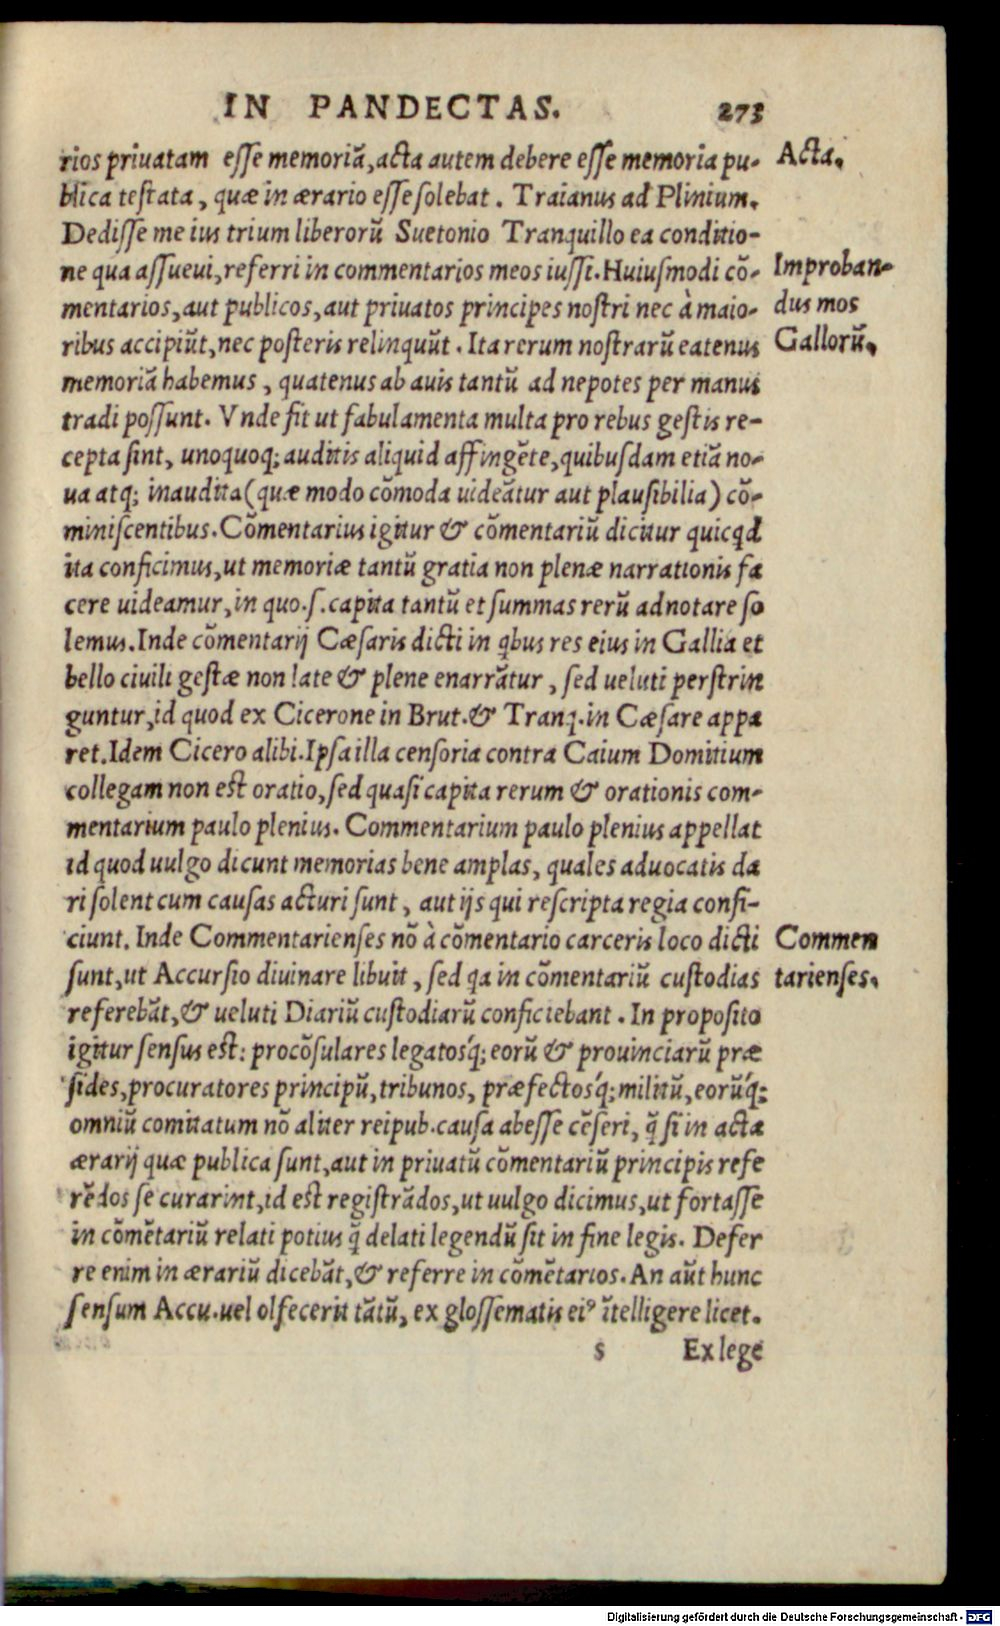 IN PANDECTAS. 273
rios priuatam esse memoriã, acta autem debere esse memoria pu- Acta.
blica testata, quæ in ærario esse solebat. Traianus ad Plinium.
Dedisse me ius trium liberorũ Suetonio Tranquillo ea conditio-
ne qua assueui, referri in commentarios meos iussi. Huiusmodi cõ- Improban-
mentarios, aut publicos, aut priuatos principes nostri nec à maio- dus mos
ribus accipiũt, nec posteris relinquũt. Ita rerum nostrarũ eatenus Gallorũ.
memoriã habemus, quatenus ab auis tantũ ad nepotes per manus
tradi possunt. Vnde fit ut fabulamenta multa pro rebus gestis re-
cepta sint, unoquoq; auditis aliquid affingẽte, quibusdam etiã no-
ua atq; inaudita (quæ modo cõmoda uideãtur aut plausibilia) cõ-
miniscentibus. Cõmentarius igitur & cõmentariũ dicitur quicqd
ita conficimus, ut memoriæ tantũ gratia non plenæ narrationis fa
cere uideamur, in quo .s. capita tantũ et summas rerũ adnotare so
lemus. Inde cõmentarij Cæsaris dicti in qbus res eius in Gallia et
bello ciuili gestæ non late & plene enarrãtur, sed ueluti perstrin
guntur, id quod ex Cicerone in Brut. & Tranq. in Cæsare appa
ret. Idem Cicero alibi. Ipsa illa censoria contra Caium Domitium
collegam non est oratio, sed quasi capita rerum & orationis com-
mentarium paulo plenius. Commentarium paulo plenius appellat
id quod uulgo dicunt memorias bene amplas, quales aduocatis da
ri solent cum causas acturi sunt, aut ijs qui rescripta regia confi-
ciunt. Inde Commentarienses nõ à cõmentario carceris loco dicti Commen
sunt, ut Accursio diuinare libuit, sed qa in cõmentariũ custodias tarienses.
referebãt, & ueluti Diariũ custodiarũ conficiebant. In proposito
igitur sensus est: procõsulares legatosq́; eorũ & prouinciarũ præ
sides, procuratores principũ, tribunos, præfectosq́; militũ, eorũq́;
omniũ comitatum nõ aliter reipub. causa abesse cẽseri, q̃ si in acta
ærarij quæ publica sunt, aut in priuatũ cõmentariũ principis refe
rẽdos se curarint, id est registrãdos, ut uulgo dicimus, ut fortasse
in cõmẽtariũ relati potius q̃ delati legendũ sit in fine legis. Defer
re enim in ærariũ dicebãt, & referre in cõmẽtarios. An aũt hunc
sensum Accu. uel olfecerit tãtũ, ex glossematis eiꝰ ĩtelligere licet.
s Ex lege
Digitalisierung gefördert durch die Deutsche Forschungsgemeinschaft - DFG